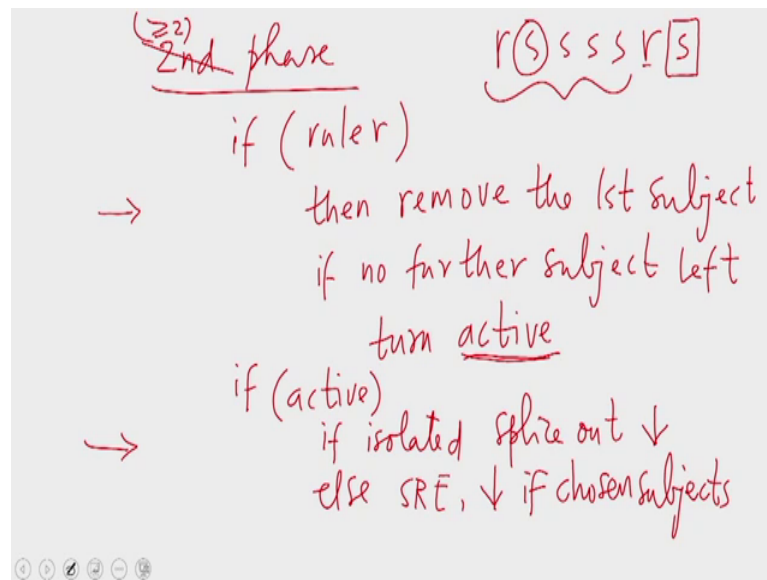 (≥2)
2nd phase
r s s s s r s
if (ruler)
→ then remove the 1st subject
if no further subject left
turn active
if (active)
→ if isolated splice out ↓
else SRE, ↓ if chosen subjects